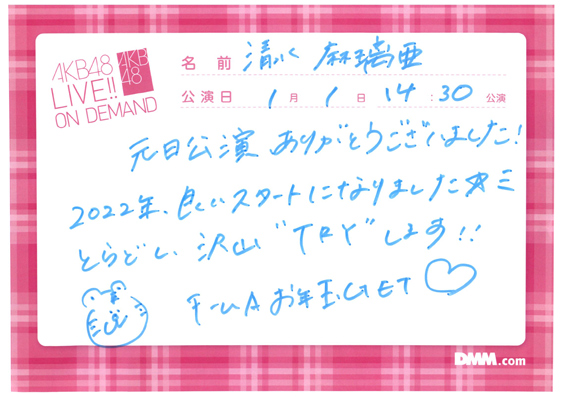 AKB48
LIVE!!
ON DEMAND
AKB
48
名 前 清水 麻璃亜
公演日 1月 1日 14:30 公演
元日公演 ありがとうございました!
2022年、良いスタートになりました☆ミ
とらどし、沢山"TRY"します!!
チームA お年玉GET♡
DMM.com